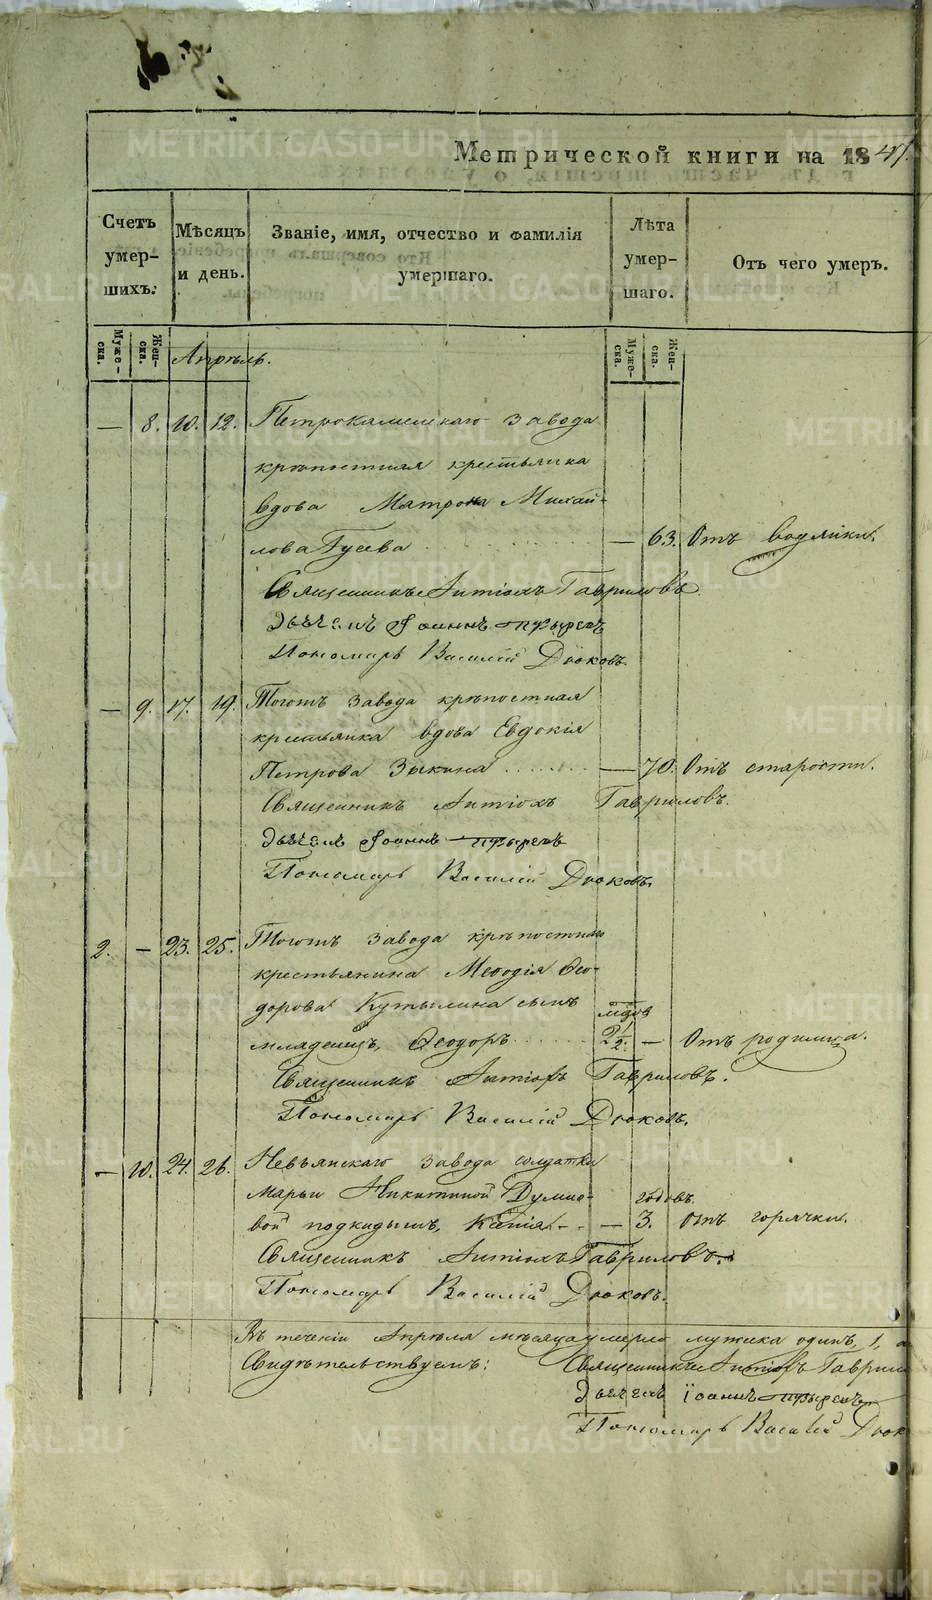 Метрической книги на 1847.
Счетъ умер-шихъ.
Мѣсяцъ и день.
Званіе, имя, отчество и фамилія умершаго.
Лѣта умер-шаго.
Отъ чего умеръ.
Муже-ска.
Жен-ска.
Апрѣль.
Муже-ска.
Жен-ска.
— 8. 10. 12. Петрокаменскаго завода
крѣпостная крестьянка
вдова Матрона Михай-
лова Гусева — 63. Отъ водянки.
Священникъ Антіохъ Гавриловъ
Дьячекъ Іоаннъ
Пономарь Василій Дюковъ.
— 9. 17. 19. Тогожъ завода крѣпостная
крестьянка вдова Евдокія
Петрова Зыкина — 70. Отъ старости.
Священникъ Антіохъ Гавриловъ.
Дьячекъ Іоаннъ
Пономарь Василій Дюковъ.
2. — 23. 25. Тогожъ завода крѣпостнаго
крестьянина Меѳодія Ѳео-
дорова Кутылина сынъ
младенецъ, Ѳеодоръ 2 1/2. — Отъ родимца.
Священникъ Антіохъ Гавриловъ.
Пономарь Василій Дюковъ.
— 10. 24. 26. Невьянскаго завода солдатки
Марьи Никитиной
годовъ.
подкидышъ, — 3. Отъ горячки.
Священникъ Антіохъ Гавриловъ.
Пономарь Василій Дюковъ.
Въ теченіи Апрѣля мѣсяца умерло мужеска одинъ, 1, а
Свидѣтельствуемъ: Священникъ Антіохъ Гаврил
Дьячекъ Іоаннъ
Пономарь Василій Дюк
METRIKI.GASO-URAL.RU